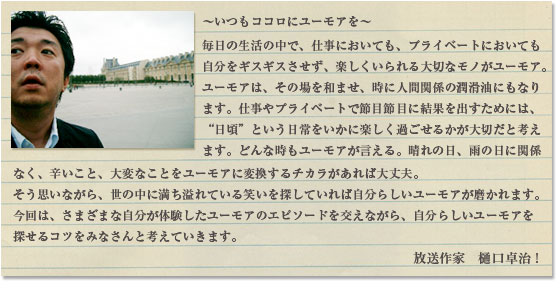 ～いつもココロにユーモアを～
毎日の生活の中で、仕事においても、プライベートにおいても
自分をギスギスさせず、楽しくいられる大切なモノがユーモア。
ユーモアは、その場を和ませ、時に人間関係の潤滑油にもなり
ます。仕事やプライベートで節目節目に結果を出すためには、
“日頃”という日常をいかに楽しく過ごせるかが大切だと考え
ます。どんな時もユーモアが言える。晴れの日、雨の日に関係
なく、辛いこと、大変なことをユーモアに変換するチカラがあれば大丈夫。
そう思いながら、世の中に満ち溢れている笑いを探していれば自分らしいユーモアが磨かれます。
今回は、さまざまな自分が体験したユーモアのエピソードを交えながら、自分らしいユーモアを
探せるコツをみなさんと考えていきます。
放送作家　樋口卓治！